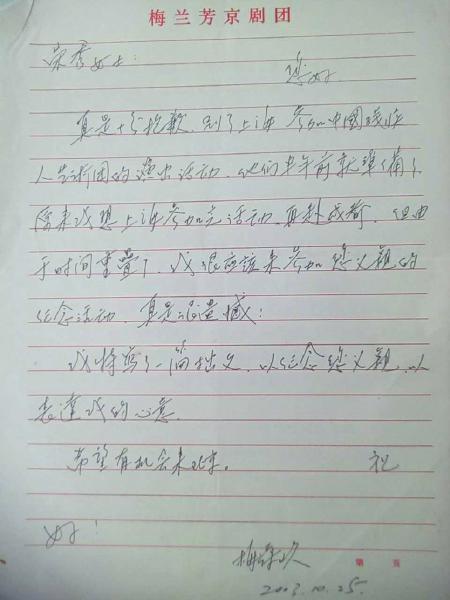 梅兰芳京剧团
宋秀女士：
您好
真是十分抱歉，到了上海参加中國残疾
人艺術团的演出活动，他们半年前就準備了，
原来我想上海参加完活动，再赴成都，但由
于时间重疊了，我很应该来参加您父親的
纪念活动，真是很遗憾！
我特写了一简拙文，以纪念您父親，以
表達我的心意。
希望有机会来北京。 祝
好！
梅葆玖
第 页
2003.10.25.